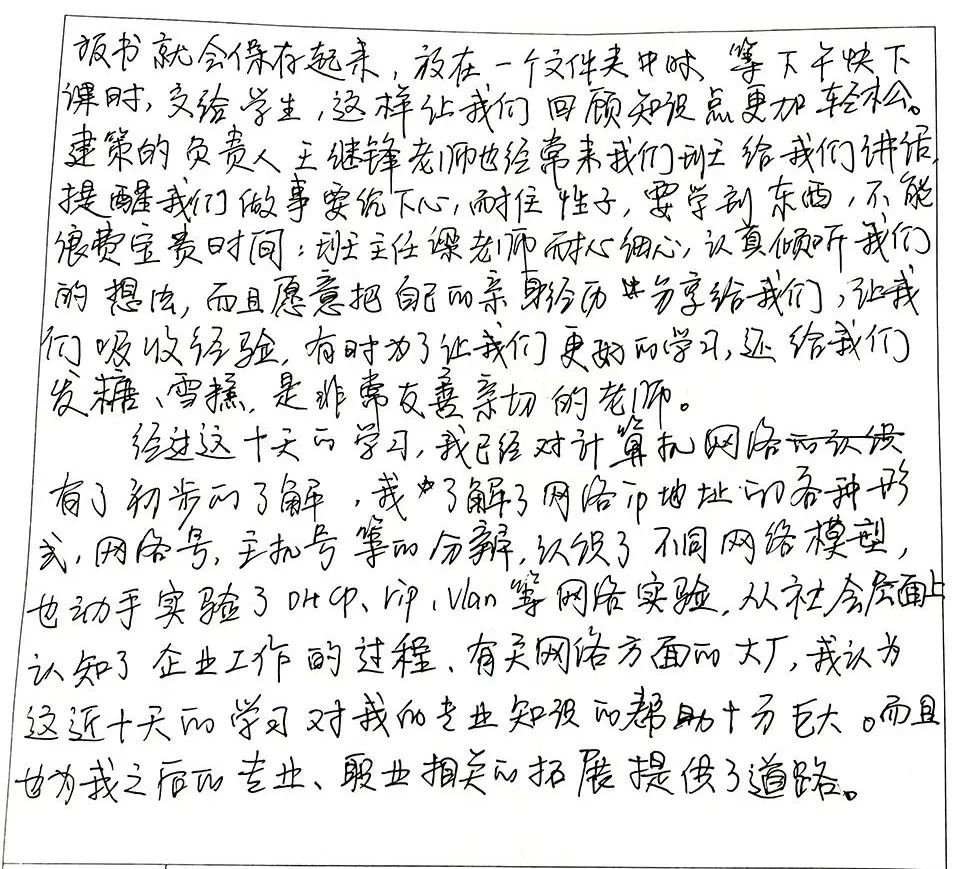 板书就会保存起来，放在一个文件夹中时，等下午快下
课时，交给学生，这样让我们回顾知识点更加轻松。
建策的负责人王继锋老师也经常来我们班 给我们讲话，
提醒我们做事要沉下心，耐住性子，要学到东西，不能
浪费宝贵时间；班主任梁老师耐心细心，认真倾听我们
的想法，而且愿意把自己的亲身经历 分享给我们，让我
们吸收经验，有时为了让我们更好的学习，还给我们
发糖、雪糕，是非常友善亲切的老师。
经过这十天的学习，我已经对计算机网络的认识
有了初步的了解，我 了解了网络ip地址的各种形
式，网络号，主机号等的分辨，认识了不同网络模型，
也动手实验了DHCP、rip、vlan等网络实验，从社会层面上
认知了企业工作的过程、有关网络方面的大厂，我认为
这近十天的学习对我的专业知识的帮助十分巨大。而且
也为我之后的专业、职业相关的拓展提供了道路。